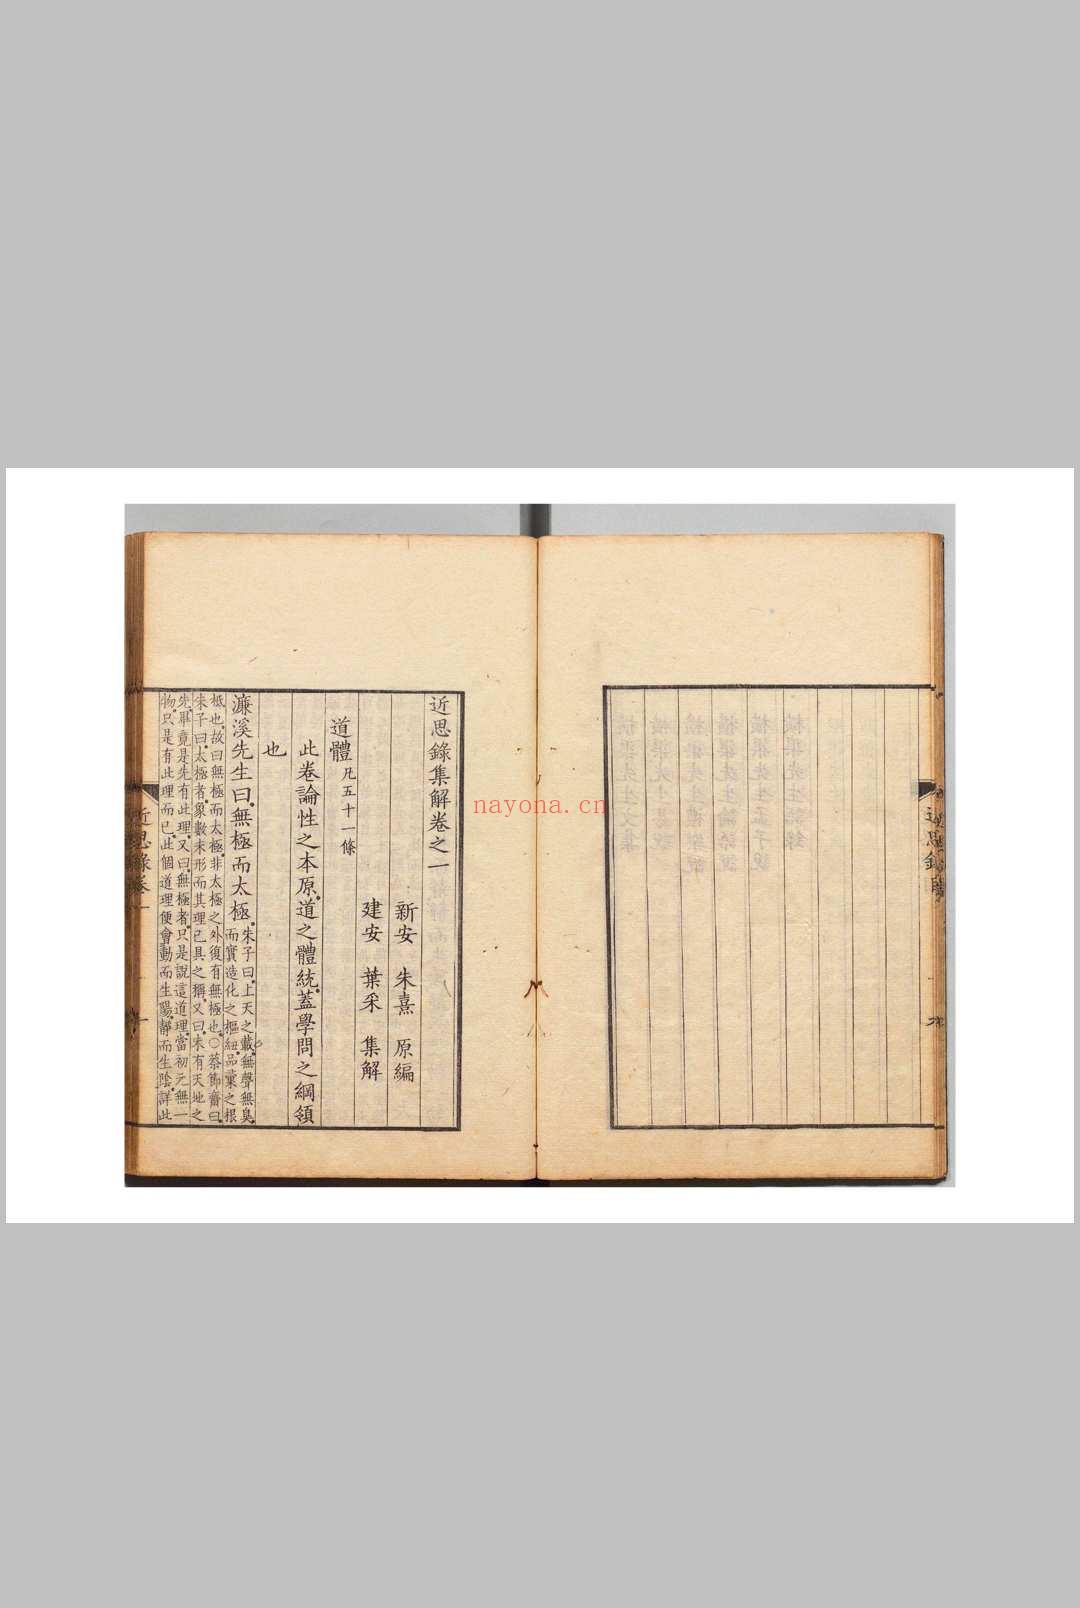 近思錄集解卷之一
新安 朱熹 原編
建安 葉采 集解
道體 凡五十一條
此卷論性之本原道之體統蓋學問之綱領
也
濂溪先生曰無極而太極
朱子曰上天之載無聲無臭
而實造化之樞紐品彙之根
柢也故曰無極而太極非太極之外復有無極也○蔡節齋曰
朱子曰太極者象數未形而其理已具之稱又曰未有天地之
先畢竟是先有此理又曰無極者只是說這道理當初元無一
物只是有此理而已此個道理便會動而生陽靜而生陰詳此
近思錄卷一
近思錄
nayona.cn